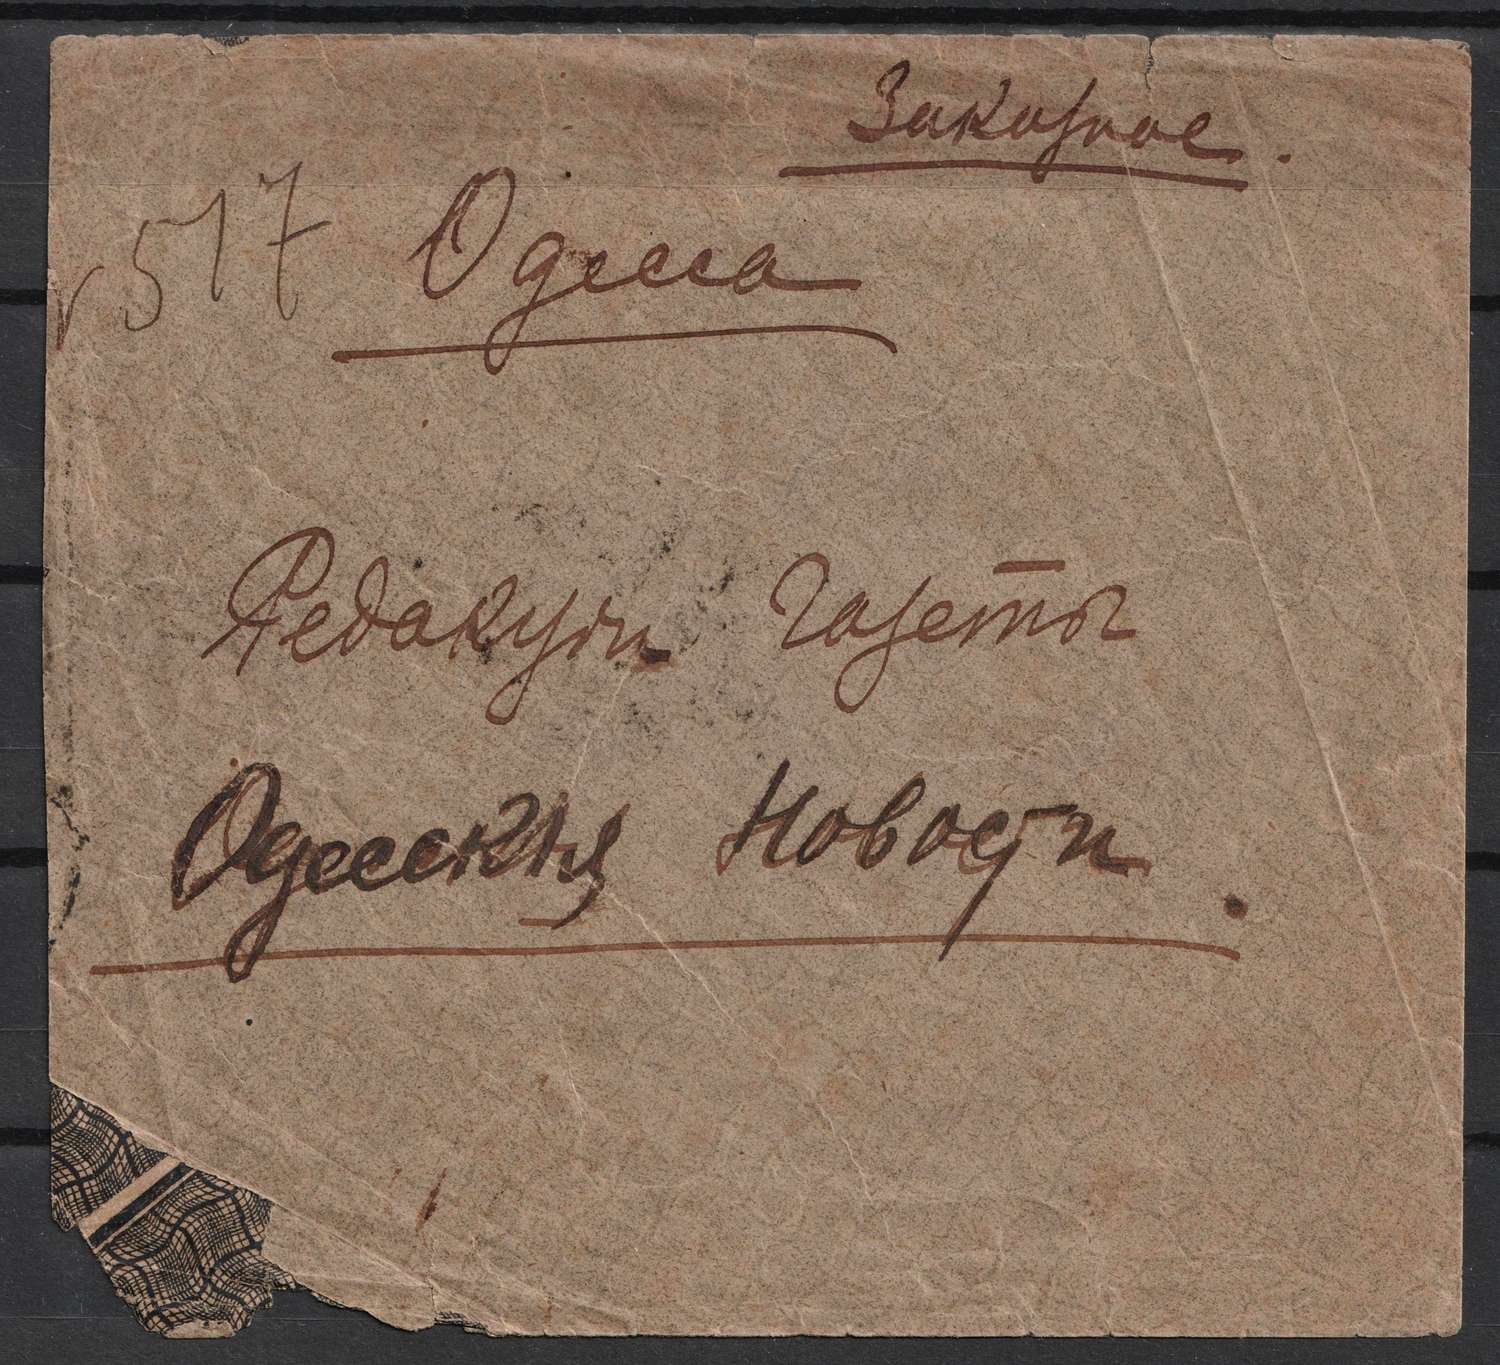 Заказное.
517
Одесса
Редакціи газеты
Одесскія Новости.